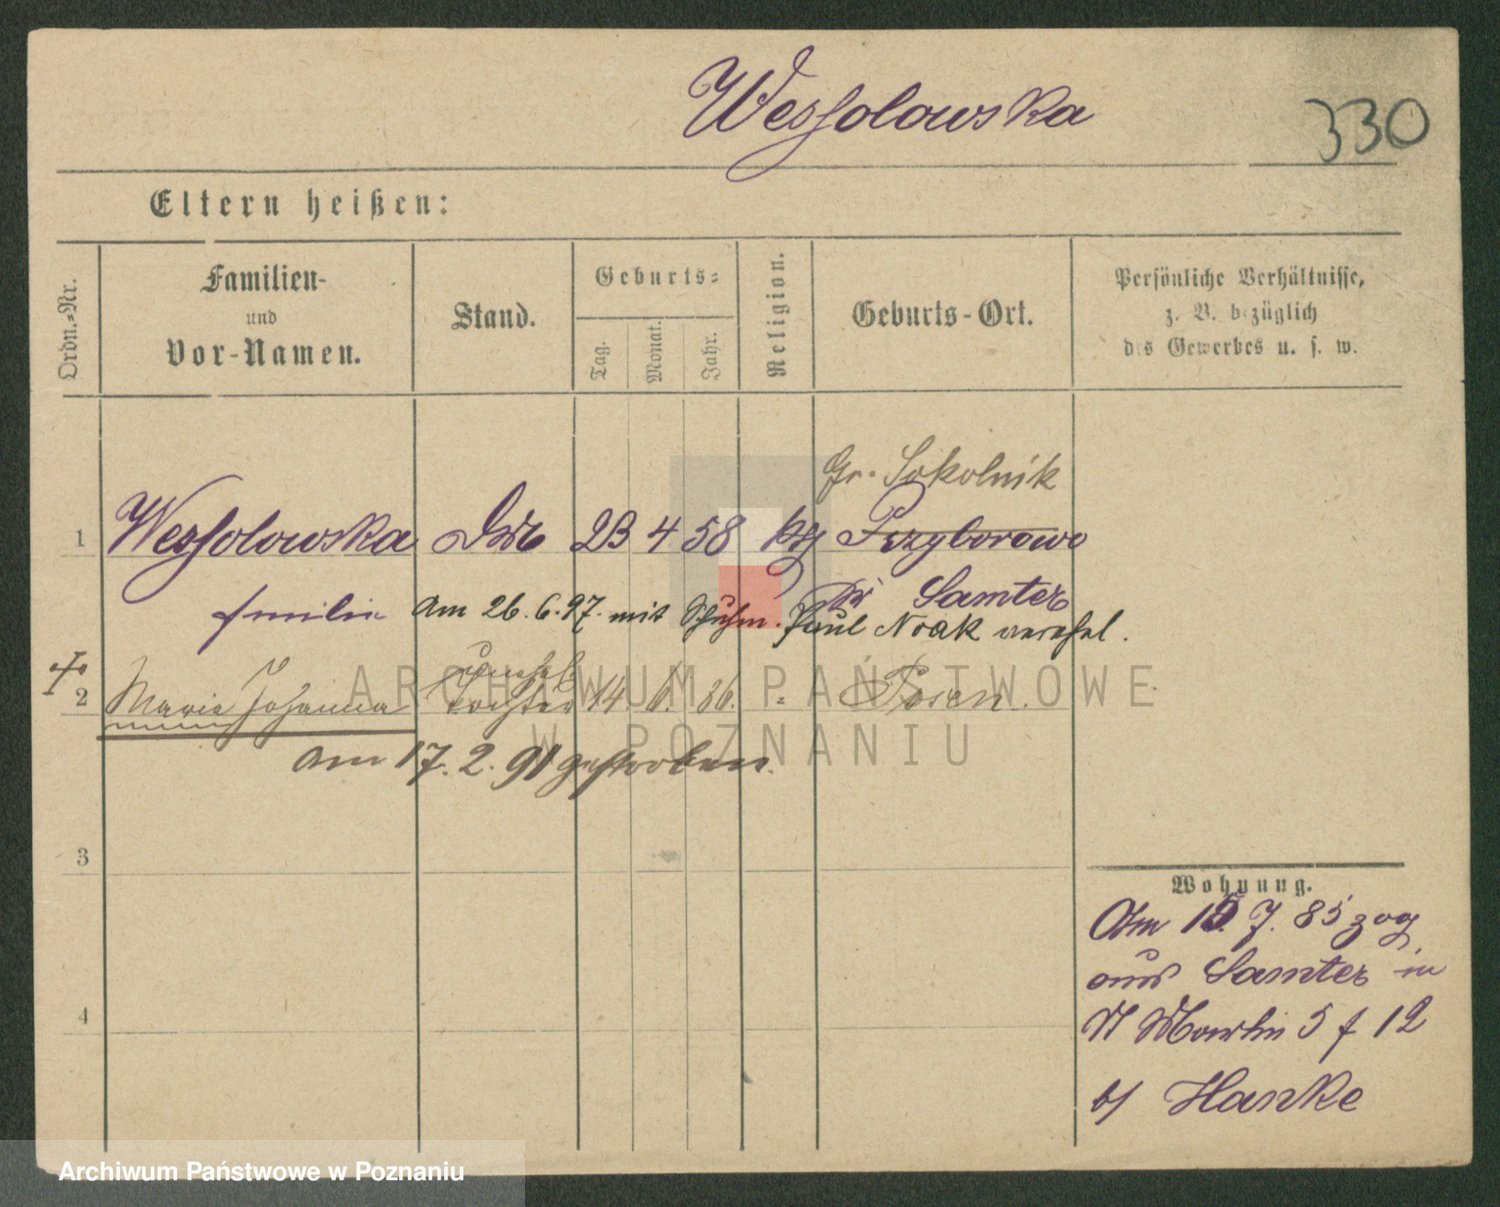 Wessolowska
330
Eltern heißen:
Ordn.-Nr.
Familien-
und
Vor-Namen.
Stand.
Geburts-
Tag.
Monat.
Jahr.
Religion.
Geburts-Ort.
Persönliche Verhältnisse,
z. B. bezüglich
des Gewerbes u. s. w.
Gr. Sokolnik
1 Wessolowska 23 4 58 kth Przyborowo
Emilie Samter
am 26.6.97. mit Schuhm. Paul Noak verehel.
unehel.
2 Maria Johanna Tochter 14 6. 86. " Posen.
am 17. 2. 91 gestorben.
3
4
Wohnung.
Am 15. 7. 85 zog
aus Samter in
St Martin 5 f 12
b/ Hanke
ARCHIWUM PAŃSTWOWE
W POZNANIU
Archiwum Państwowe w Poznaniu